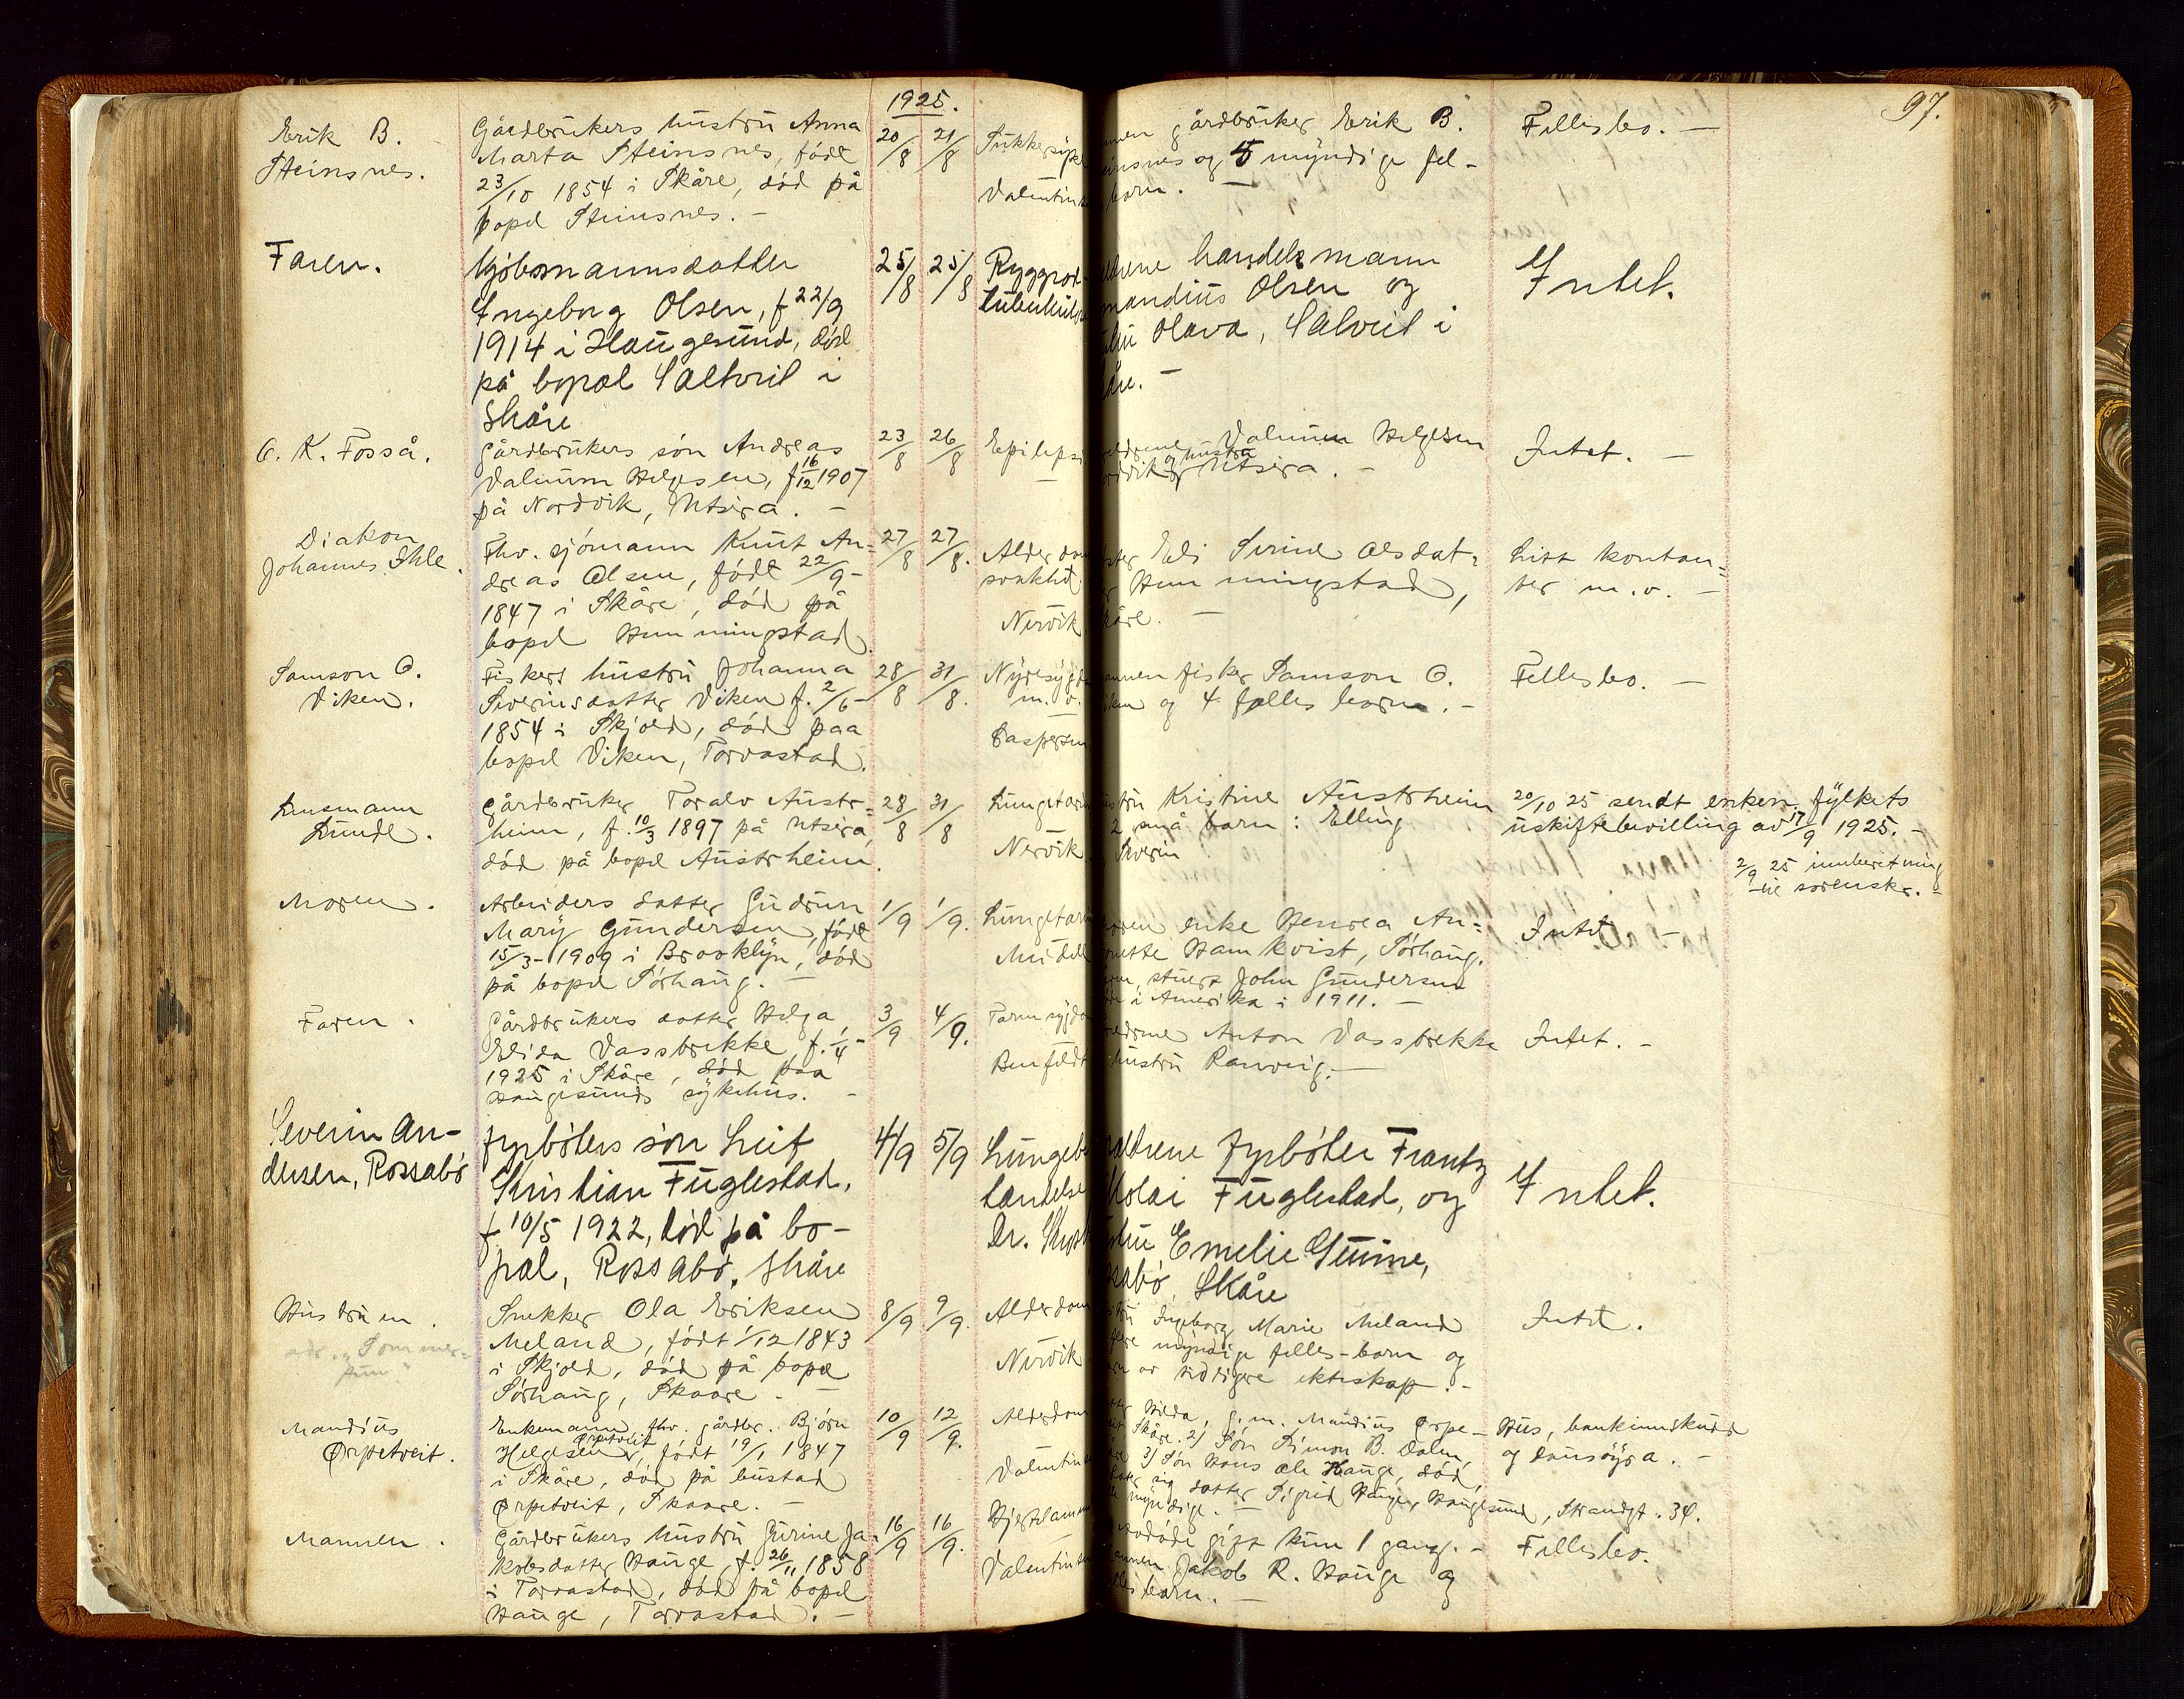 1925.
97.
Erik B.
Steinsnes.
Gårdbrukers hustru Anna
Marta Steinsnes, født
23/10 1854 i Skåre, død på
bopel Steinsnes. -
20/8
21/8
Sukkersyke
Valentins
gårdbruker Erik B.
og 5 myndige fel-
barn. -
Fellesbo. -
Faren.
Kjøbmannsdatter
Ingeborg Olsen, f 22/9
1914 i Haugesund, død
på bopæl Saltveit i
Skåre
25/8
25/8
Ryggrad-
tuberkulose
handelsmann
Olsen og
Olava, Saltveit i
Intet.
O. K. Fosså.
Gårdbrukers søn Andreas
Valnum Helgesen, f 16/12 1907
på Nordvik, Utsira. -
23/8
26/8
Epilepsi
Valnum Helgesen
og hustru
Utsira. -
Intet. -
Diakon
Johannes Ihle.
Fhv. sjømann Knut An-
dreas Olsen, født 22/9-
1847 i Skåre, død på
bopel Hemmingstad.
27/8
27/8.
Alderdom
svakhet.
Nervik
Eli Serine Olsdat-
Hemmingstad,
Litt kontan-
ter m.v. -
Samson O.
Viken.
Fiskers hustru Johanna
Severinsdatter Viken f. 2/6-
1854 i Skjold, død paa
bopel Viken, Torvastad.
28/8
31/8.
Nyresygdom
m. v.
Caspersen
fisker Samson O.
og 4 felles barn. -
Fellesbo. -
Lensmann
Lunde.
Gårdbruker Toralv Austr-
heim, f. 10/3 1897 på Utsira,
død på bopel Austrheim.
28/8
31/8
Nervik
Kristine Austrheim
2 små barn: Elling
Sverin
20/10 25 sendt enken fylkets
uskiftebevilling av 17/9 1925. -
2/9 25 innberetning
til sorenskr. -
Moren.
Arbeiders datter Gudrun
Mary Gundersen, født
15/3-1909 i Brooklyn, død
på bopel Sørhaug. -
1/9
1/9.
enke Henrea An-
Hamkvist, Sørhaug.
stuert John Gundersen
i Amerika i 1911. -
Intet -
Faren.
Gårdbrukers datter Helga
Elida Vassbrekke, f. 1/4-
1925 i Skåre, død paa
Haugesunds sykehus. -
3/9
4/9.
Tarmsygdom
Anton Vassbrekke
hustru Ranveig. -
Intet. -
Severin An-
dersen, Rossabø
Fyrbøters søn Leif
Kristian Fuglestad,
f. 10/5 1922, død på bo-
pæl, Rossabø, Skåre
4/9
5/9
Lungebe
tændelse
fyrbøter Frantz
Fuglestad, og
Emelie Gurine,
Skåre
Intet.
Hustruen.
adr. "Sommer-
Snekker Ola Eriksen
Meland, født 1/12 1843
i Skjold, død på bopel
Sørhaug, Skaare. -
8/9
9/9.
Alderdom
Nervik
Ingeborg Marie Meland
myndige felles-barn og
av tidligere ekteskap. -
Intet.
Mandius
Ørpetveit.
Enkemann fhv. gårdbr. Bjørn
Ørpetveit
Helgesen, født 19/1 1847
i Skåre, død på bustad
Ørpetveit, Skaare. -
10/9
12/9.
Alderdom
Valentins
Hilda, g. m. Mandius Ørpe-
Skåre. 2) Søn Simon B. Dalen,
3) Søn Hans Ole Hauge, død,
datter Sigrid Hauge, Haugesund, Strandgt. 34.
myndige. -
Hus, bankinnskudd
og løusøyra. -
Mannen.
Gårdbrukers hustru Gurine Ja-
kobsdatter Hauge, f. 26/11 1858
i Torvastad, død på bopel
Hauge, Torvastad. -
16/9
16/9.
Valentins
gift kun 1 gang. -
Jakob R. Hauge og
barn. -
Fellesbo.